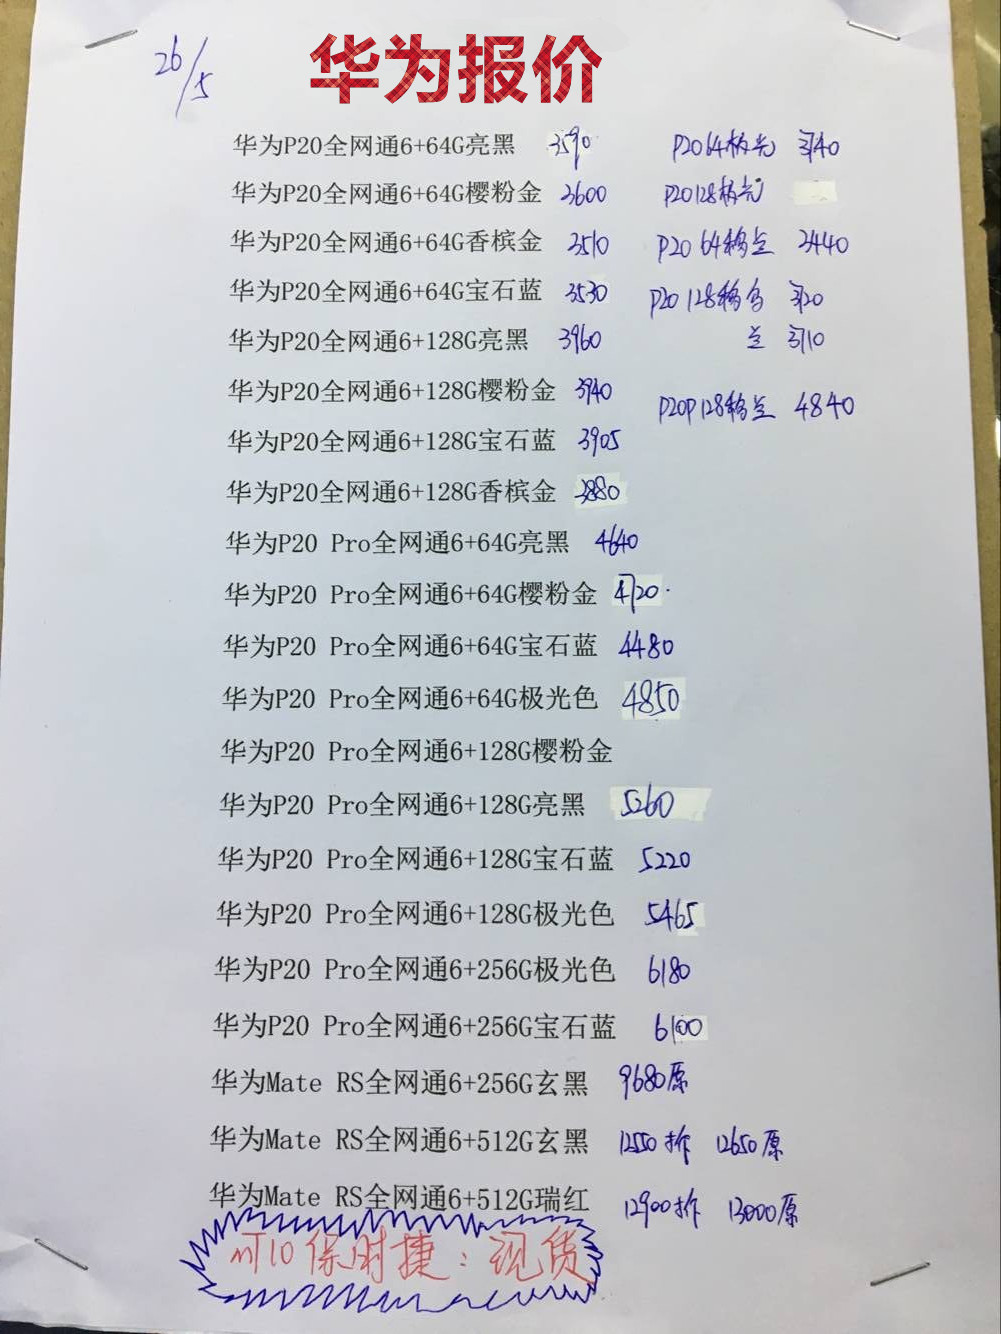 26/5
华为报价
华为P20全网通6+64G亮黑 3590 P20 64极光 3740
华为P20全网通6+64G樱粉金 3600 P20 128极光
华为P20全网通6+64G香槟金 3510 P20 64移兰 3440
华为P20全网通6+64G宝石蓝 3530 P20 128移 3720
华为P20全网通6+128G亮黑 3960 兰 3710
华为P20全网通6+128G樱粉金 3940 P20P 128移兰 4840
华为P20全网通6+128G宝石蓝 3905
华为P20全网通6+128G香槟金 3880
华为P20 Pro全网通6+64G亮黑 4640
华为P20 Pro全网通6+64G樱粉金 4720
华为P20 Pro全网通6+64G宝石蓝 4480
华为P20 Pro全网通6+64G极光色 4850
华为P20 Pro全网通6+128G樱粉金
华为P20 Pro全网通6+128G亮黑 5260
华为P20 Pro全网通6+128G宝石蓝 5220
华为P20 Pro全网通6+128G极光色 5465
华为P20 Pro全网通6+256G极光色 6180
华为P20 Pro全网通6+256G宝石蓝 6100
华为Mate RS全网通6+256G玄黑 9680原
华为Mate RS全网通6+512G玄黑 12550拆 12650原
华为Mate RS全网通6+512G瑞红 12900拆 13000原
MT10保时捷：现货